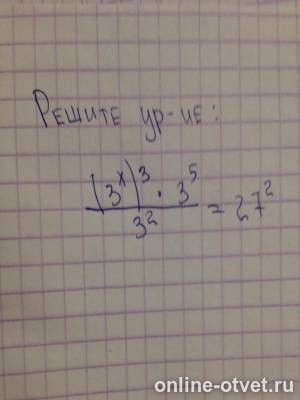 Решите ур-ие:
(3^x)^3 · 3^5
3^2
= 27^2
online-otvet.ru